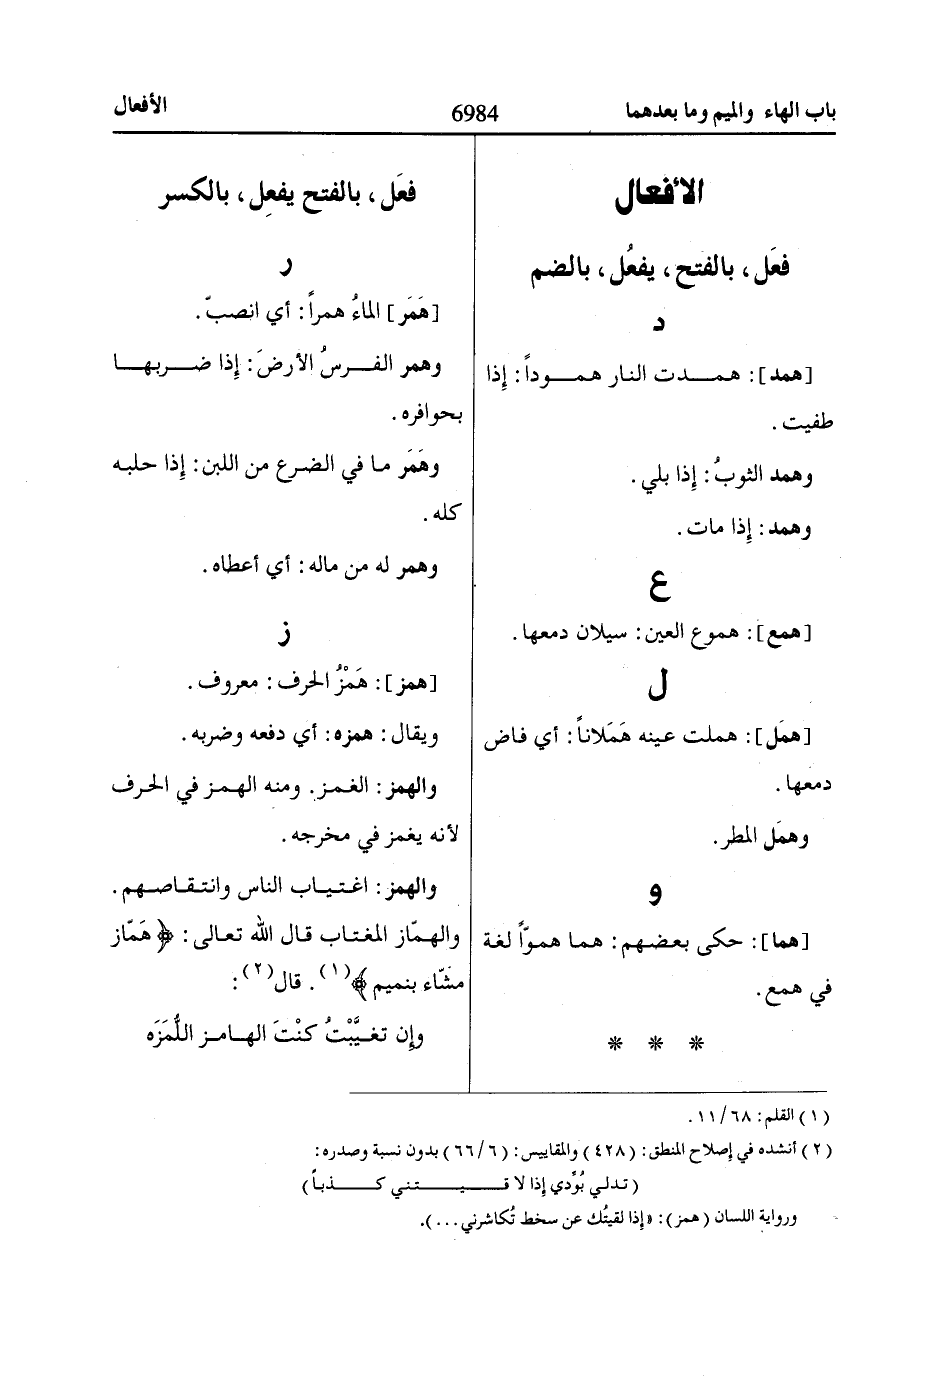 باب الهاء والميم وما بعدهما
6984
الأفعال
الأفعال
فعَل، بالفتح، يفعُل، بالضم
د
[همد]: همدت النار هموداً: إذا
طفيت.
وهمد الثوبُ: إذا بلي.
وهمد: إذا مات.
ع
[همع]: هموع العين: سيلان دمعها.
ل
[همَل]: هملت عينه هَمَلاناً: أي فاض
دمعها.
وهمَل المطر.
و
[هما]: حكى بعضهم: هما همواً لغة
في همع.
* * *
فعَل، بالفتح يفعِل، بالكسر
ر
[هَمَر] الماءُ همراً: أي انصبّ.
وهمر الفرسُ الأرضَ: إذا ضربها
بحوافره.
وهَمَر ما في الضرع من اللبن: إذا حلبه
كله.
وهمر له من ماله: أي أعطاه.
ز
[همز]: هَمْزُ الحرف: معروف.
ويقال: همزه: أي دفعه وضربه.
والهمز: الغمز. ومنه الهمز في الحرف
لأنه يغمز في مخرجه.
والهمز: اغتياب الناس وانتقاصهم.
والهمّاز المغتاب قال الله تعالى: ﴿هَمّاز
مشّاء بنميم﴾(١). قال(٢):
وإن تغيَّبْتُ كنْتَ الهامز اللُّمَزَه
(١) القلم: ٦٨/ ١١.
(٢) أنشده في إصلاح المنطق: (٤٢٨) والمقاييس: (٦/ ٦٦) بدون نسبة وصدره:
(تدلي بُوُدِّي إذا لاقيتني كذباً)
ورواية اللسان (همز): «إذا لقيتُك عن سخط تُكاشرني...).